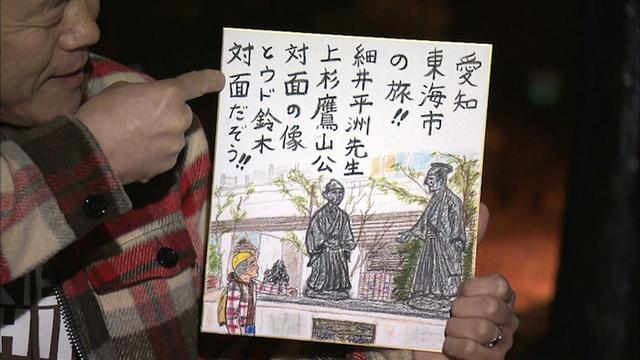 愛知
東海市
の旅!!
細井平洲先生
上杉鷹山公
対面の像
とウド鈴木
対面だぞう!!